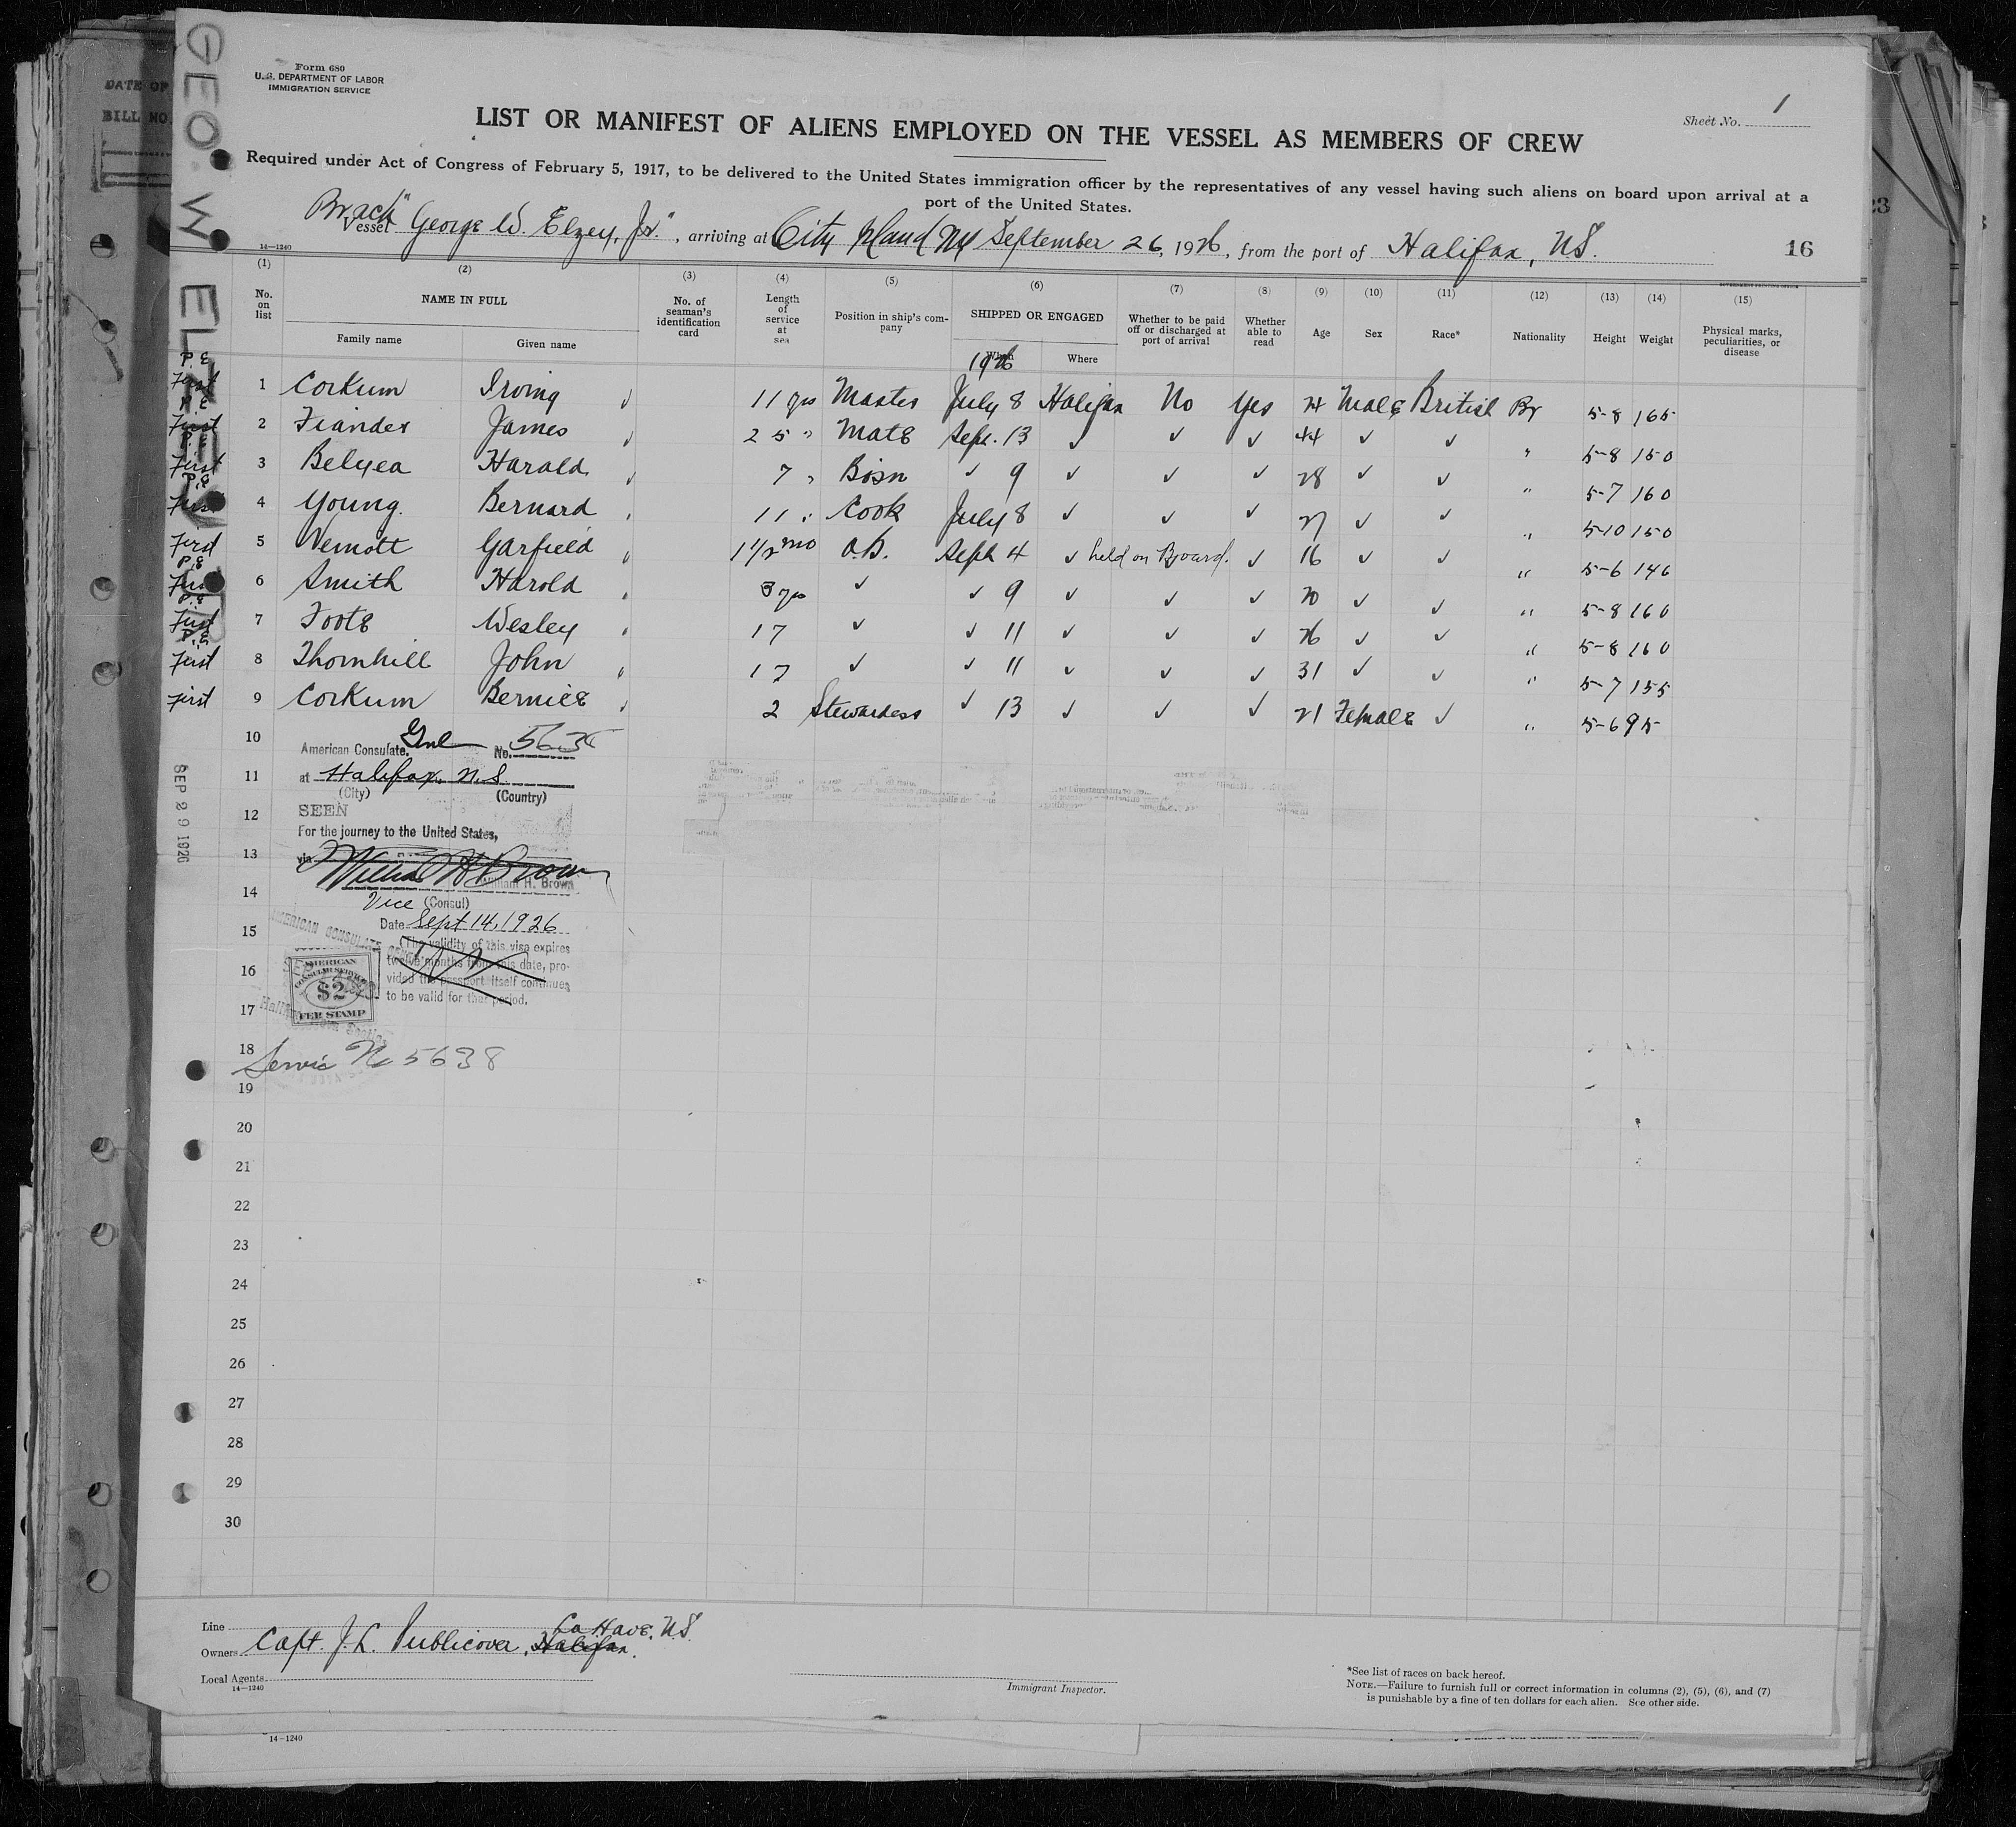 GEO. W. ELZEY JR
DATE OF
BILL NO.
Form 680
U.S. DEPARTMENT OF LABOR
IMMIGRATION SERVICE
Sheet No. 1
LIST OR MANIFEST OF ALIENS EMPLOYED ON THE VESSEL AS MEMBERS OF CREW
Required under Act of Congress of February 5, 1917, to be delivered to the United States immigration officer by the representatives of any vessel having such aliens on board upon arrival at a
port of the United States.
Vessel "George W. Elzey, Jr.", arriving at City Island NY September 26, 1926, from the port of Halifax, N.S.
14—1240
16
23
(1) (2) (3) (4) (5) (6) (7) (8) (9) (10) (11) (12) (13) (14) (15)
No. on list
NAME IN FULL
Family name Given name
No. of seaman's identification card
Length of service at sea
Position in ship's company
SHIPPED OR ENGAGED
When Where
1926
Whether to be paid off or discharged at port of arrival
Whether able to read
Age Sex Race* Nationality Height Weight
Physical marks, peculiarities, or disease
P.E First 1 Corkum Irving 11 yrs Master July 8 Halifax No Yes 24 Male British Br 5-8 165
P.E First 2 Fiander James ✓ 25 " Mate Sept. 13 ✓ ✓ ✓ 44 ✓ ✓ " 5-8 150
P.E First 3 Belyea Harald 7 " Bosn ✓ 9 ✓ ✓ ✓ 28 ✓ ✓ " 5-7 160
P.E First 4 Young Bernard 11 " Cook July 8 ✓ ✓ ✓ 27 ✓ ✓ " 5-10 150
First 5 Garfield 1 1/2 mo O.S. Sept 4 ✓ held on Board. ✓ 16 ✓ ✓ " 5-6 146
P.E First 6 Smith Harold 3 yrs ✓ ✓ 9 ✓ ✓ ✓ 20 ✓ ✓ " 5-8 160
P.E First 7 Foote Wesley 17 ✓ ✓ 11 ✓ ✓ ✓ 26 ✓ ✓ " 5-8 160
P.E First 8 Thornhill John 17 ✓ ✓ 11 ✓ ✓ ✓ 31 ✓ ✓ " 5-7 155
First 9 Corkum Bernice 2 Stewardess ✓ 13 ✓ ✓ ✓ 21 Female ✓ " 5-6 95
10
American Consulate Gnl No.
11
at Halifax, N.S.
(City) (Country)
12
SEEN
For the journey to the United States,
13
via
William H Brown
William H. Brown
14
Vice (Consul)
15
Date Sept 14, 1926
(The validity of this visa expires
16
twelve months from this date, pro-
vided the passport itself continues
to be valid for that period.
17
AMERICAN CONSULAR SERVICE
$2
FEE STAMP
SEP 29 1926
18
Service No 5638
19
20
21
22
23
24
25
26
27
28
29
30
Line
La Have, N.S.
Owners Capt. J. L. Publicover, Halifax.
Local Agents
14—1240
Immigrant Inspector.
*See list of races on back hereof.
NOTE.—Failure to furnish full or correct information in columns (2), (5), (6), and (7)
is punishable by a fine of ten dollars for each alien. See other side.
14—1240